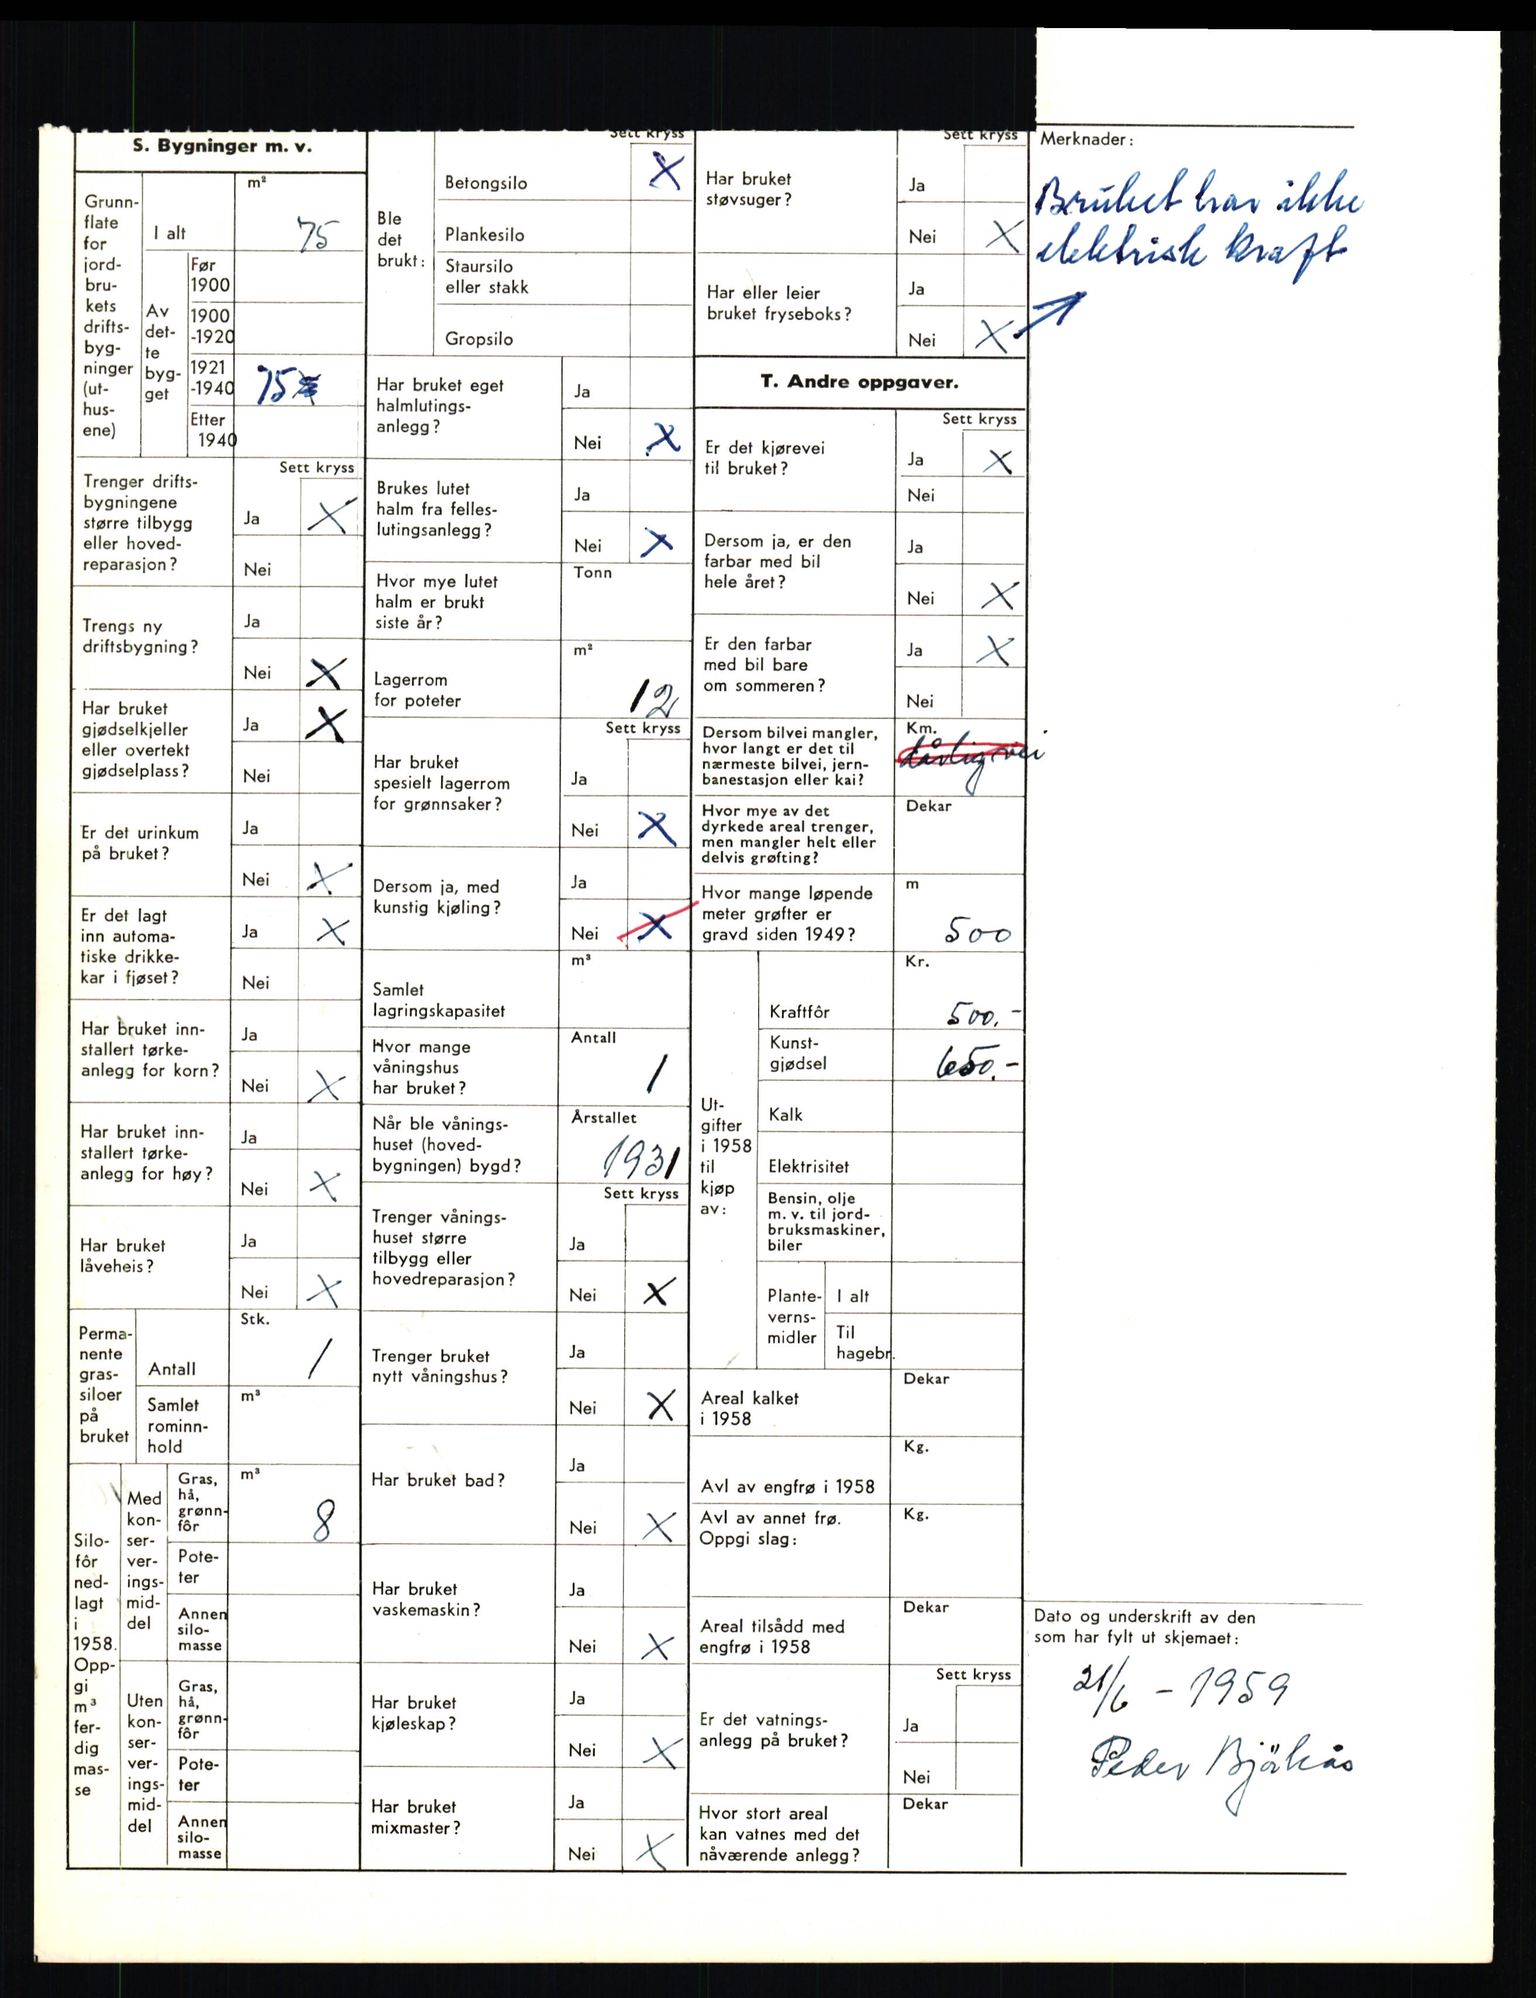 S. Bygninger m. v.
Grunn-
flate
for
jord-
bru-
kets
drifts-
byg-
ninger
(ut-
hus-
ene)
m²
I alt
75
Av
det-
te
byg-
get
Før
1900
1900
-1920
1921
-1940
75
Etter
1940
Sett kryss
Trenger drifts-
bygningene
større tilbygg
eller hoved-
reparasjon?
Ja X
Nei
Trengs ny
driftsbygning?
Ja
Nei X
Har bruket
gjødselkjeller
eller overtekt
gjødselplass?
Ja X
Nei
Er det urinkum
på bruket?
Ja
Nei X
Er det lagt
inn automa-
tiske drikke-
kar i fjøset?
Ja X
Nei
Har bruket inn-
stallert tørke-
anlegg for korn?
Ja
Nei X
Har bruket inn-
stallert tørke-
anlegg for høy?
Ja
Nei X
Har bruket
låveheis?
Ja
Nei X
Perma-
nente
gras-
siloer
på
bruket
Stk.
Antall
1
Samlet
rominn-
hold
m³
Silo-
fôr
ned-
lagt
i
1958.
Opp-
gi
m³
fer-
dig
mas-
se
Med
kon-
ser-
ver-
ings-
mid-
del
Gras,
hå,
grønn-
fôr
m³
8
Pote-
ter
Annen
silo-
masse
Uten
kon-
ser-
ver-
ings-
mid-
del
Gras,
hå,
grønn-
fôr
Pote-
ter
Annen
silo-
masse
Sett kryss
Ble
det
brukt:
Betongsilo X
Plankesilo
Staursilo
eller stakk
Gropsilo
Har bruket eget
halmlutings-
anlegg?
Ja
Nei X
Brukes lutet
halm fra felles-
lutingsanlegg?
Ja
Nei X
Hvor mye lutet
halm er brukt
siste år?
Tonn
Lagerrom
for poteter
m²
12
Sett kryss
Har bruket
spesielt lagerrom
for grønnsaker?
Ja
Nei X
Dersom ja, med
kunstig kjøling?
Ja
Nei X
Samlet
lagringskapasitet
m³
Hvor mange
våningshus
har bruket?
Antall
1
Når ble vånings-
huset (hoved-
bygningen) bygd?
Årstallet
1931
Sett kryss
Trenger vånings-
huset større
tilbygg eller
hovedreparasjon?
Ja
Nei X
Trenger bruket
nytt våningshus?
Ja
Nei X
Har bruket bad?
Ja
Nei X
Har bruket
vaskemaskin?
Ja
Nei X
Har bruket
kjøleskap?
Ja
Nei X
Har bruket
mixmaster?
Ja
Nei X
Sett kryss
Har bruket
støvsuger?
Ja
Nei X
Har eller leier
bruket fryseboks?
Ja
Nei X
T. Andre oppgaver.
Sett kryss
Er det kjørevei
til bruket?
Ja X
Nei
Dersom ja, er den
farbar med bil
hele året?
Ja
Nei X
Er den farbar
med bil bare
om sommeren?
Ja X
Nei
Dersom bilvei mangler,
hvor langt er det til
nærmeste bilvei, jern-
banestasjon eller kai?
Km.
dårlig vei
Hvor mye av det
dyrkede areal trenger,
men mangler helt eller
delvis grøfting?
Dekar
Hvor mange løpende
meter grøfter er
gravd siden 1949?
m
500
Ut-
gifter
i 1958
til
kjøp
av:
Kr.
Kraftfôr
500.-
Kunst-
gjødsel
650.-
Kalk
Elektrisitet
Bensin, olje
m. v. til jord-
bruksmaskiner,
biler
Plante-
verns-
midler
I alt
Til
hagebr.
Areal kalket
i 1958
Dekar
Avl av engfrø i 1958
Kg.
Avl av annet frø.
Oppgi slag:
Kg.
Areal tilsådd med
engfrø i 1958
Dekar
Sett kryss
Er det vatnings-
anlegg på bruket?
Ja
Nei
Hvor stort areal
kan vatnes med det
nåværende anlegg?
Dekar
Merknader:
Bruket har ikke
elektrisk kraft
Dato og underskrift av den
som har fylt ut skjemaet:
21/6 - 1959
Peder Bjåkås